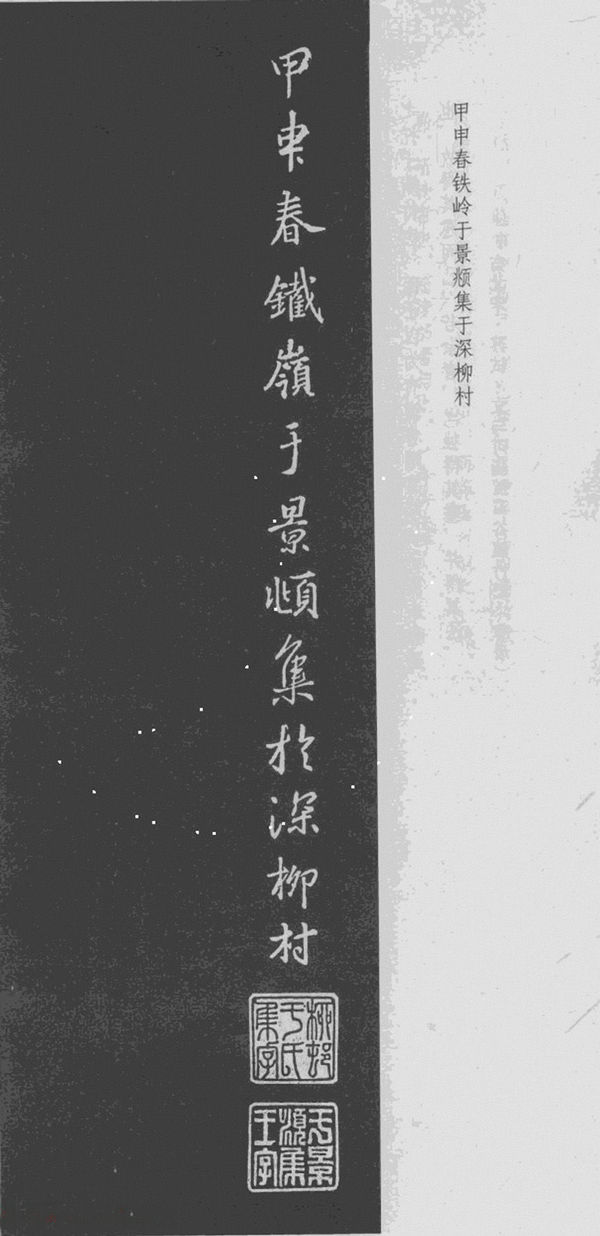 甲申春铁岭于景𫖯集于深柳村
甲申春鐵嶺于景頫集於深柳村
柳邨
于氏
集字
于景
頫集
王字